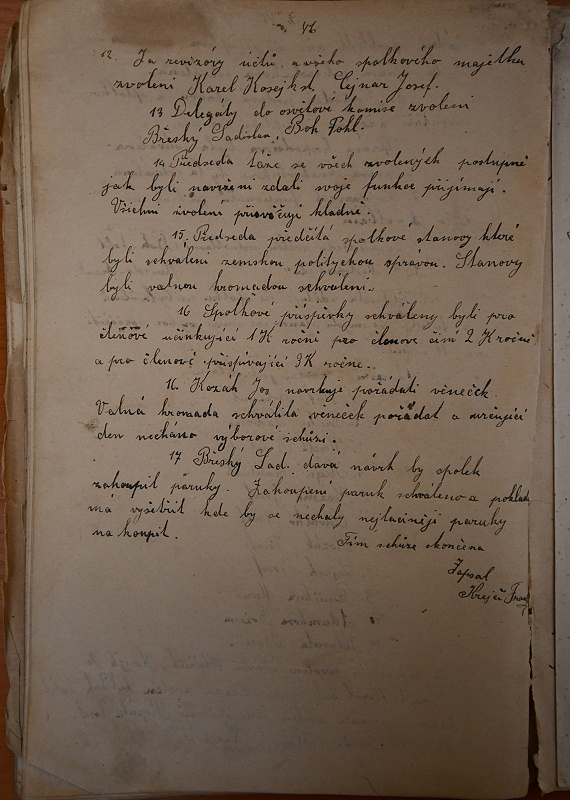 46
12. Za revizóry účtů a všeho spolkového majetku
zvoleni Karel Kosejk st. Cejnar Josef.
13 Delegáty do osvětové komise zvoleni
Břeský Ladislav, Boh. Pohl.
14 Předseda táže se všech zvolených postupně
jak byli navrženi zdali svoje funkce přijímají.
Všichni zvolení přisvěčují kladně.
15. Předseda předčítá spolkové stanovy které
byli schváleni zemskou politychou spravou. Stanovy
byli valnou hromadou schváleni.
16 Spolkové příspěvky schváleny byli pro
členové učinkující 1 K ročni pro členove čin 2 K ročně
a pro členové přispívající 3 K ročne.
16. Kozák Jos navrhuje pořádati věneček
Valná hromada schválila věneček pořádat a určující
den necháno výborové schůzi.
17 Břeský Lad. dává návrh by spolek
zakoupil paruky. Zakoupení paruk schváleno a poklad
má vyšetřit kde by se nechaly nejlaciněji paruky
nakoupit.
Tím schůze skončena
Zapsal
Krejčí Fran